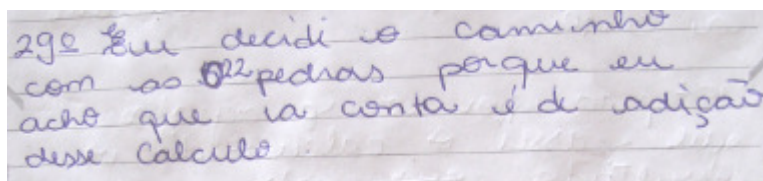 29º Eu decidi o caminho
com as 22 pedras porque eu
acho que a conta é de adição
desse calculo.